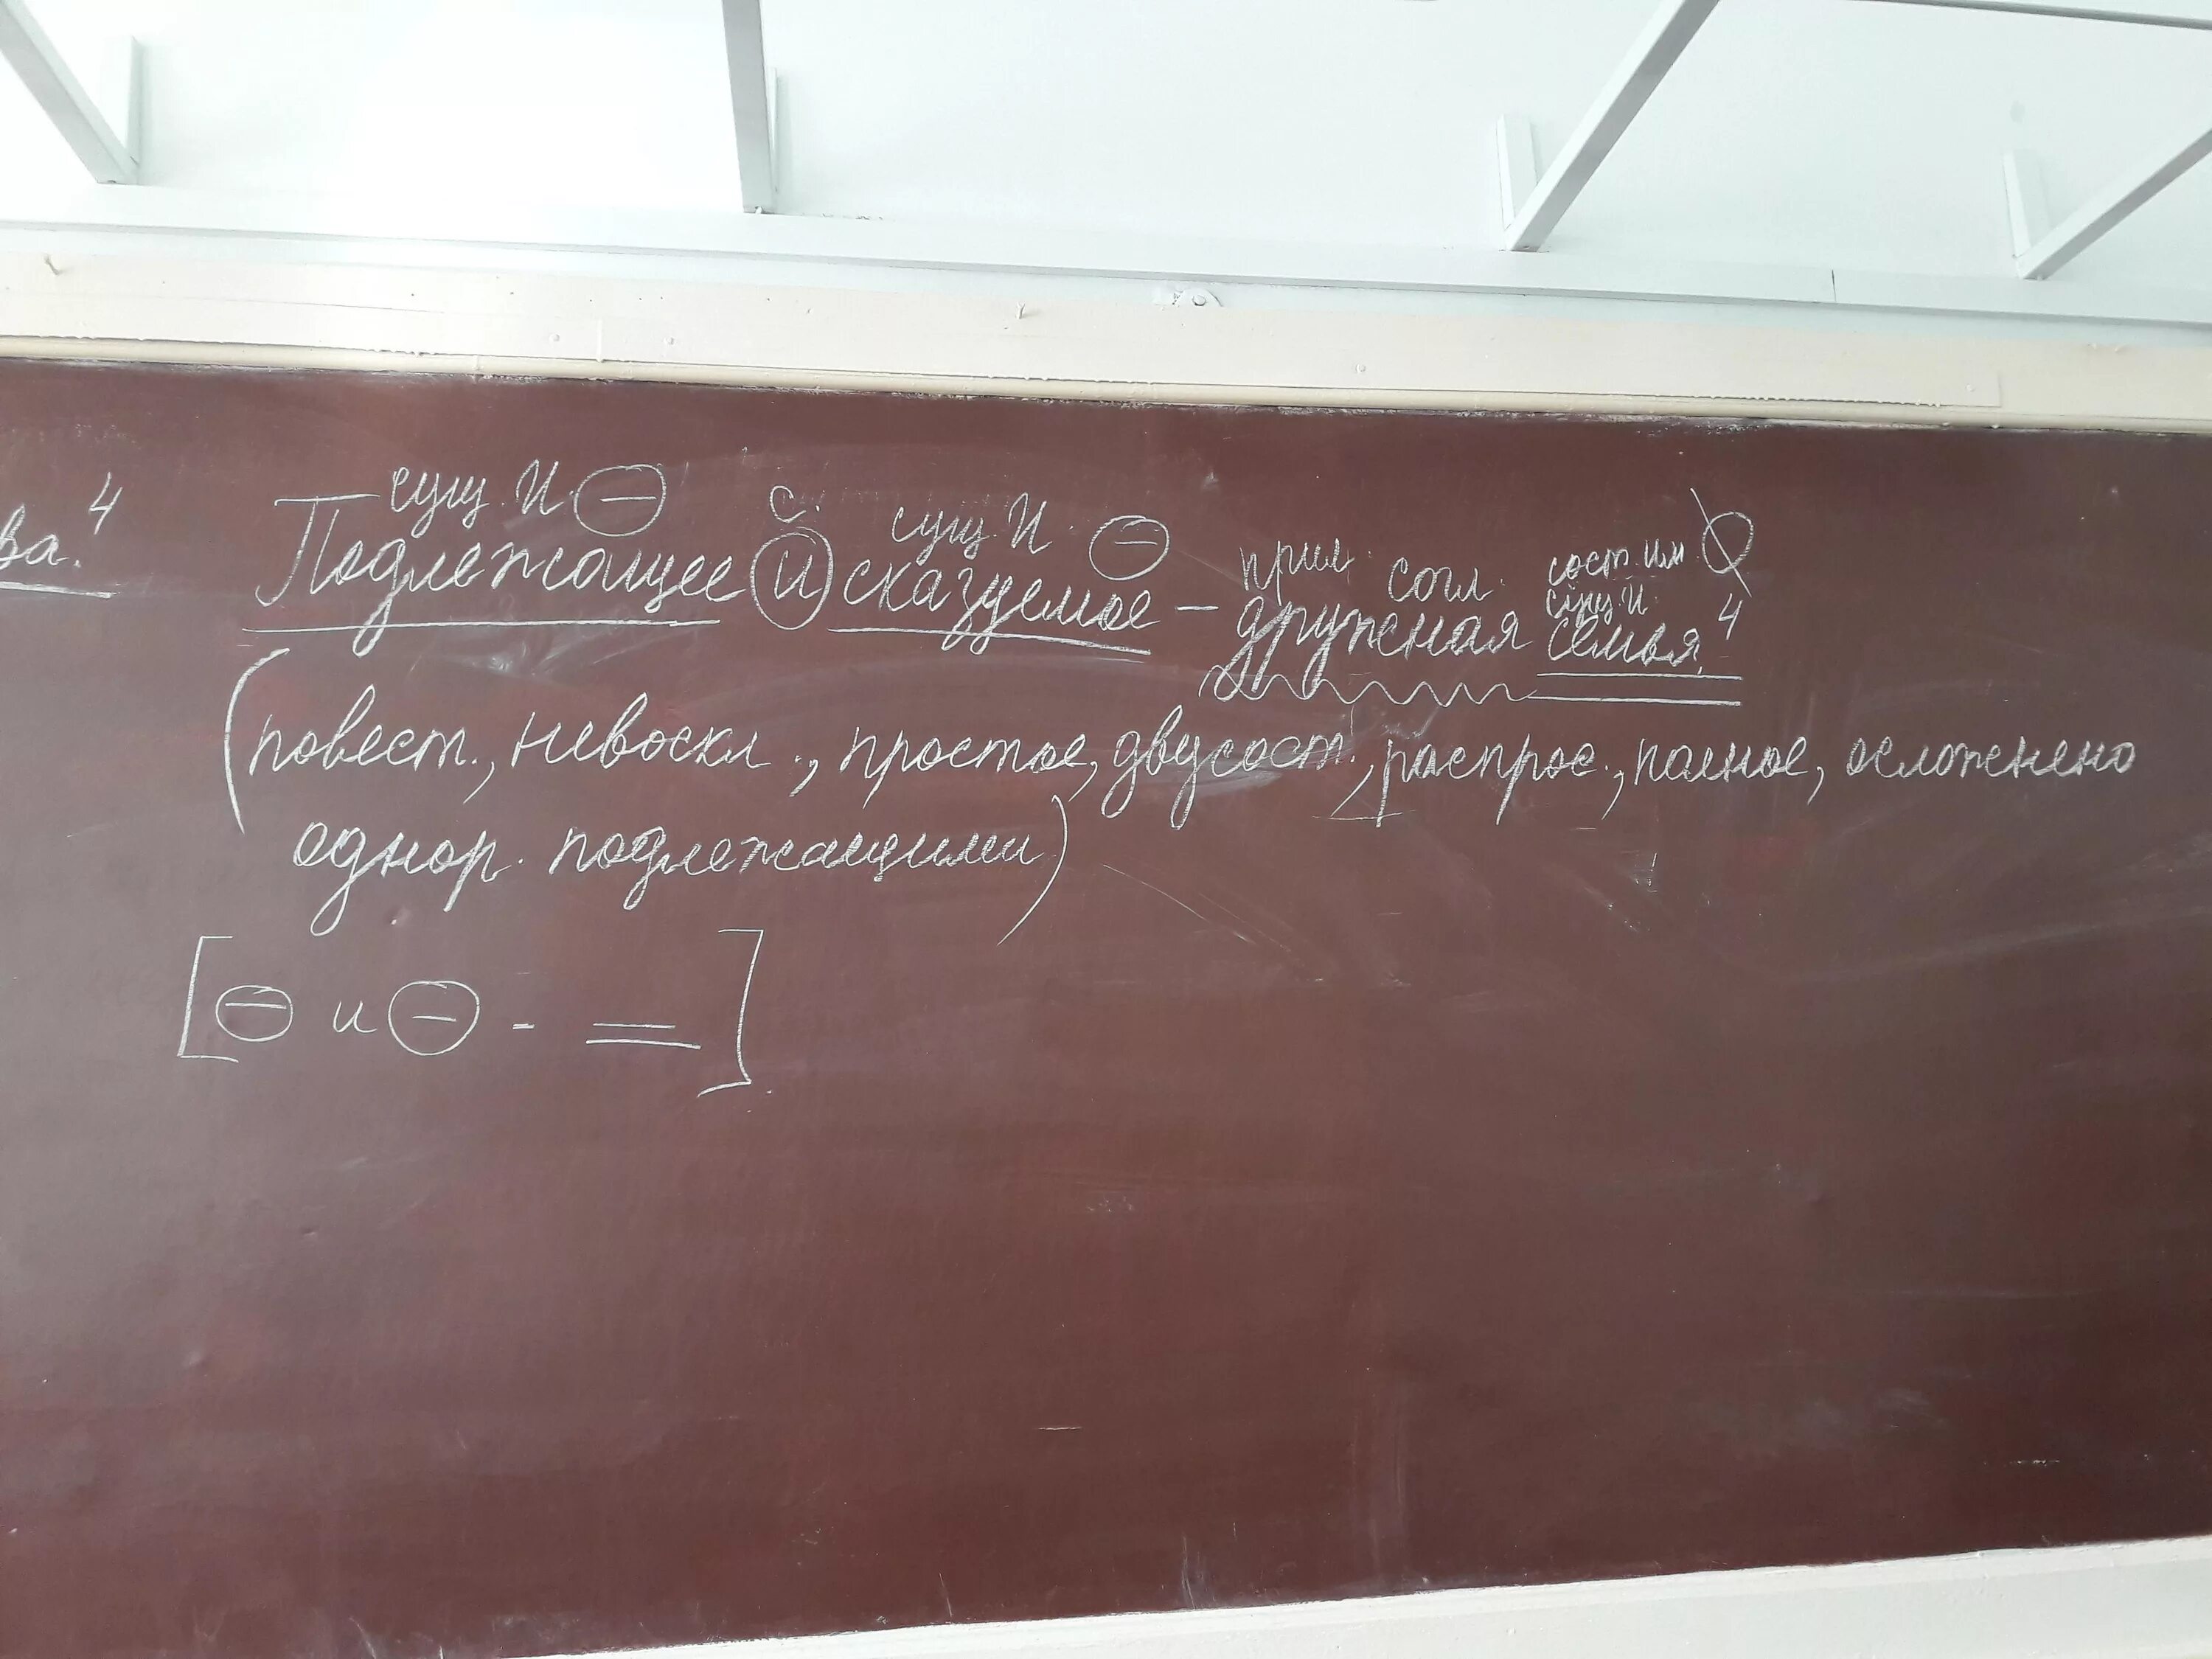 сущ. И. с. сущ. И. прил. согл. сост. им.
сущ. И.
ва.⁴ Подлежащее и сказуемое – дружная семья.⁴
(повест., невоскл., простое, двусост., распрос., полное, осложнено
однор. подлежащими)
[ и - ].